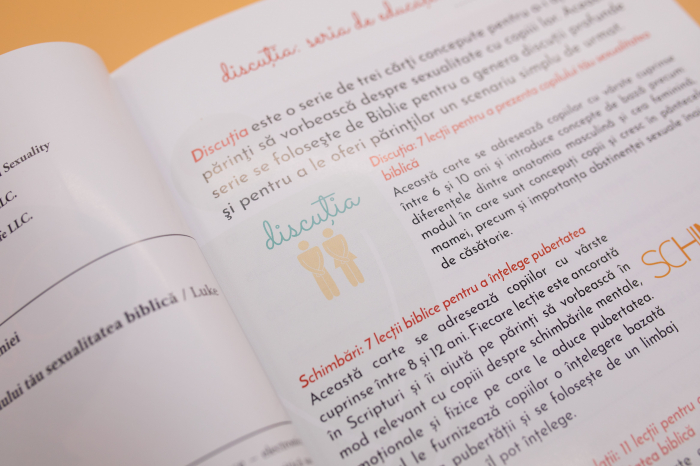 Sexuality
LLC.
LLC.
sexualitatea biblică / Luke
discuția: seria de
Discuția este o serie de trei cărți concepute pentru a-i
părinți să vorbească despre sexualitate cu copiii lor. Această
serie se folosește de Biblie pentru a genera discuții profunde
și pentru a le oferi părinților un scenariu simplu de urmat.
discuția
Discuția: 7 lecții pentru a prezenta copilului tău sexualitatea
biblică
Această carte se adresează copiilor cu vârste cuprinse
între 6 și 10 ani și introduce concepte de bază precum
diferențele dintre anatomia masculină și cea feminină,
modul în care sunt concepuți copiii și cresc în pântecele
mamei, precum și importanța abstinenței sexuale
de căsătorie.
Schimbări: 7 lecții biblice pentru a înțelege pubertatea
Această carte se adresează copiilor cu vârste
cuprinse între 8 și 12 ani. Fiecare lecție este ancorată
în Scripturi și îi ajută pe părinți să vorbească în
mod relevant cu copiii despre schimbările mentale,
emoționale și fizice pe care le aduce pubertatea.
le furnizează copiilor o înțelegere bazată
pubertății și se folosește de un limbaj
pot înțelege.
11 lecții pentru
biblică